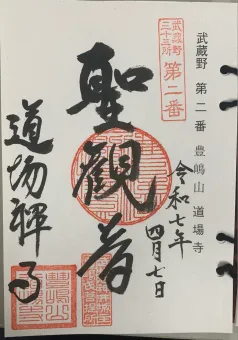 武蔵野 第二番 豊嶋山 道場寺
武蔵野
三十三所
第二番
令和七年
四月七日
聖観音
道場禅寺